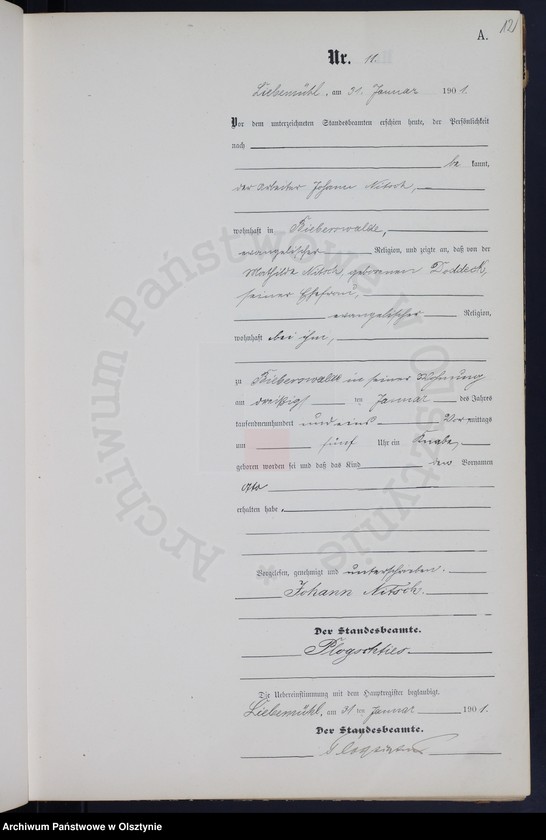 A.
121
Nr. 11.
Liebemühl, am 31. Januar 1901.
Vor dem unterzeichneten Standesbeamten erschien heute, der Persönlichkeit
nach
be kannt,
der Arbeiter Johann Nitsch,
wohnhaft in Bieberswalde,
evangelischer Religion, und zeigte an, daß von der
Mathilde Nitsch geborenen Doddeck,
seiner Ehefrau,
evangelischer Religion,
wohnhaft bei ihm,
zu Bieberswalde in seiner Wohnung
am dreißigsten Januar des Jahres
tausendneunhundert und eins Vor mittags
um fünf Uhr ein Knabe,
geboren worden sei und daß das Kind den Vornamen
Otto
erhalten habe.
Vorgelesen, genehmigt und unterschrieben.
Johann Nitsch.
Der Standesbeamte.
Die Uebereinstimmung mit dem Hauptregister beglaubigt.
Liebemühl, am 31 ten Januar 1901.
Der Standesbeamte.
Archiwum Państwowe w Olsztynie *
Archiwum Państwowe w Olsztynie